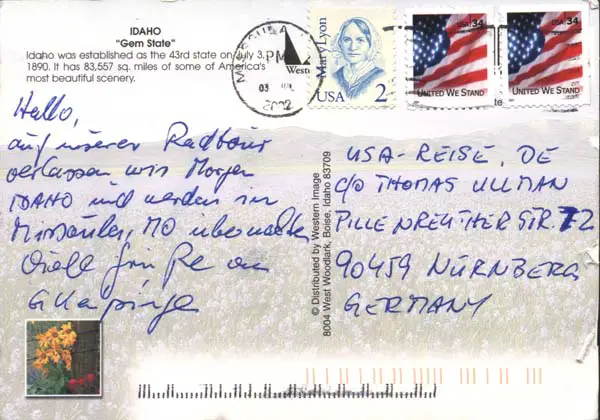 IDAHO
"Gem State"
Idaho was established as the 43rd state on July 3,
1890. It has 83,557 sq. miles of some of America's
most beautiful scenery.
MISSOULA
PM
2002
Mary Lyon
USA 2
USA 34
UNITED WE STAND
USA 34
UNITED WE STAND
Hallo,
auf unserer Radtour
verlassen wir Morgen
IDAHO und werden in
Missoula, MO übernachten
Viele Grüße an
© Distributed by Western Image
8004 West Woodark, Boise, Idaho 83709
USA-REISE, DE
C/O THOMAS ULLMAN
PILLENREUTHER STR. 72
90459 NÜRNBERG
GERMANY